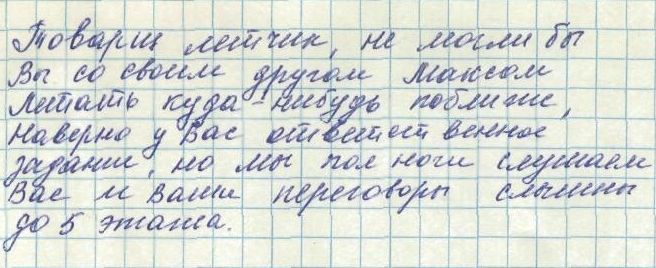 Товарищ летчик, не могли бы
Вы со своим другом Максом
Летать куда-нибудь поближе,
Наверно у Вас ответственное
задание, но мы пол ночи слушаем
Вас и ваши переговоры слышны
до 5 этажа.